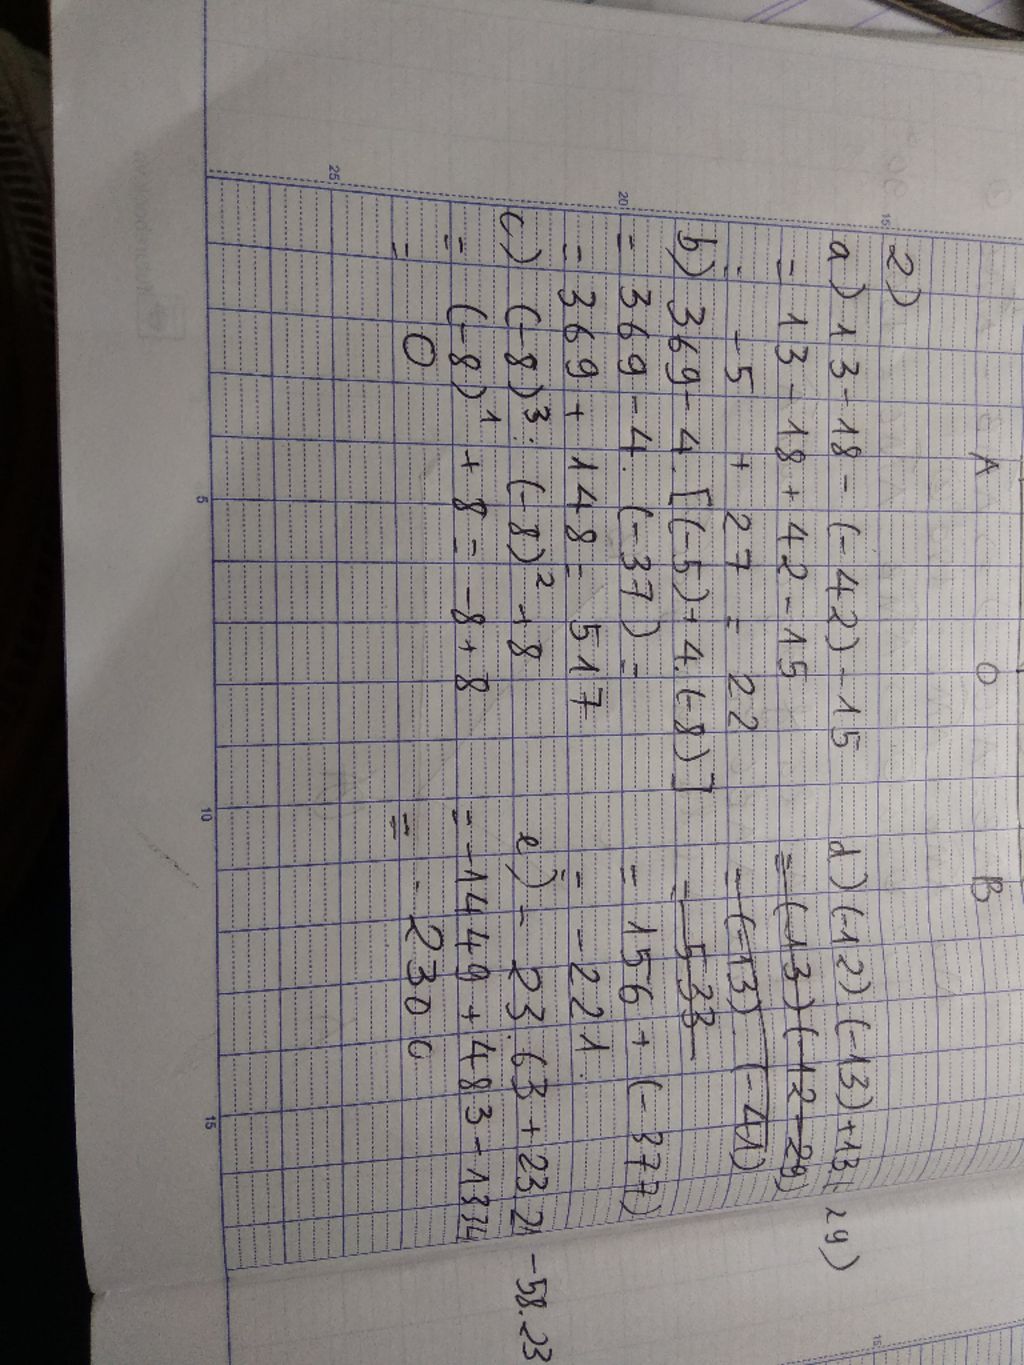 A O B
2)
a) 13 - 18 - (-42) - 15
= 13 - 18 + 42 - 15
= -5 + 27 = 22
b) 369 - 4. [(-5) + 4. (-8)]
= 369 - 4. (-37) =
= 369 + 148 = 517
c) (-8)³ : (-8)² + 8
= (-8)¹ + 8 = -8 + 8
= 0
d) (-12) (-13) + 13 (-29)
= (-13) (-12 - 29)
= (-13) (-41)
= 533
= 156 + (-377)
= -221.
e) - 23. 63 + 23. 21 - 58. 23
= -1449 + 483 - 1334
= - 2300
15
20
25
5
10
15